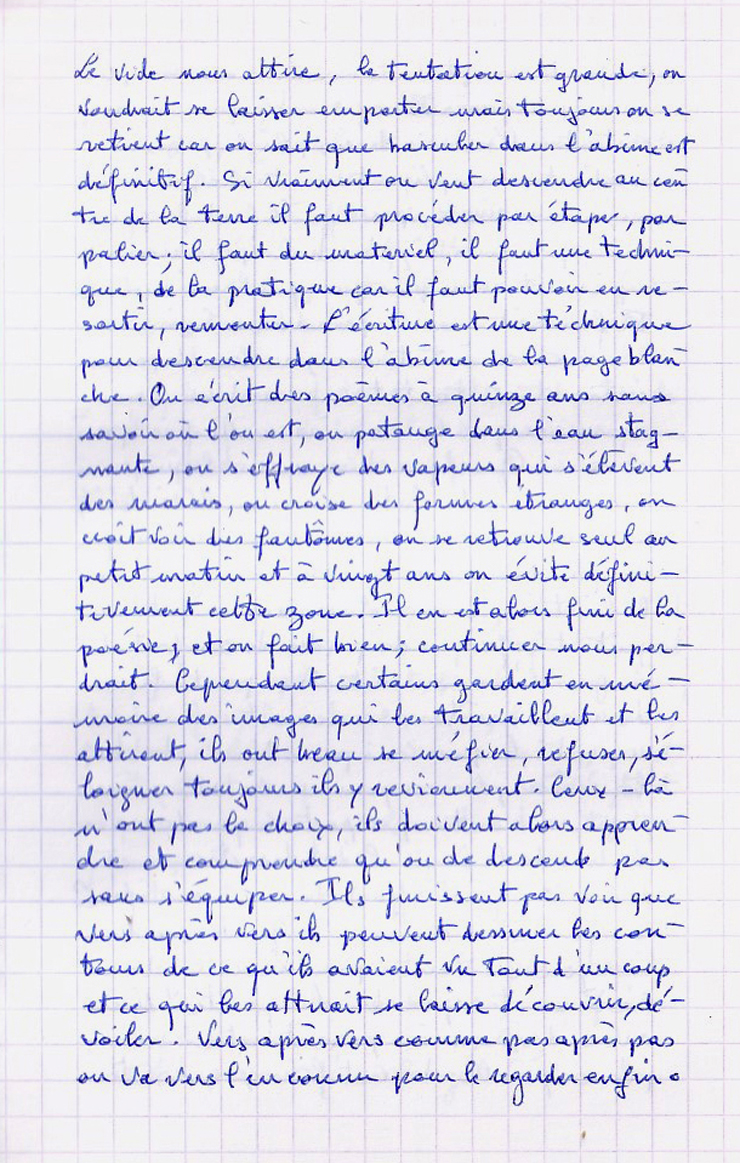 Le vide nous attire, la tentation est grande, on
voudrait se laisser emporter mais toujours on se
retient car on sait que basculer dans l'abîme est
définitif. Si vraiment on veut descendre au cen
tre de la terre il faut procéder par étape, par
palier; il faut du materiel, il faut une techni-
que, de la pratique car il faut pouvoir en re-
sortir, remonter. L'écriture est une technique
pour descendre dans l'abîme de la page blan
che. On écrit des poèmes à quinze ans sans
savoir où l'on est, on patauge dans l'eau stag-
nante, on s'effraye des vapeurs qui s'élèvent
des marais, on croise des formes etranges, on
croit voir des fantômes, on se retrouve seul au
petit matin et à vingt ans on évite défini-
tivement cette zone. Il en est alors fini de la
poésie, et on fait bien; continuer nous per-
drait. Cependant certains gardent en mé-
moire des images qui les travaillent et les
attirent, ils ont beau se méfier, refuser, s'é-
loigner toujours ils y reviennent. Ceux-là
n'ont pas le choix, ils doivent alors appren-
dre et comprendre qu'on de descend pas
sans s'équiper. Ils finissent par voir que
vers après vers ils peuvent dessiner les con-
tours de ce qu'ils avaient vu tout d'un coup
et ce qui les attirait se laisse découvrir, dé-
voiler. Vers après vers comme pas après pas
on va vers l'inconnu pour le regarder enfin.